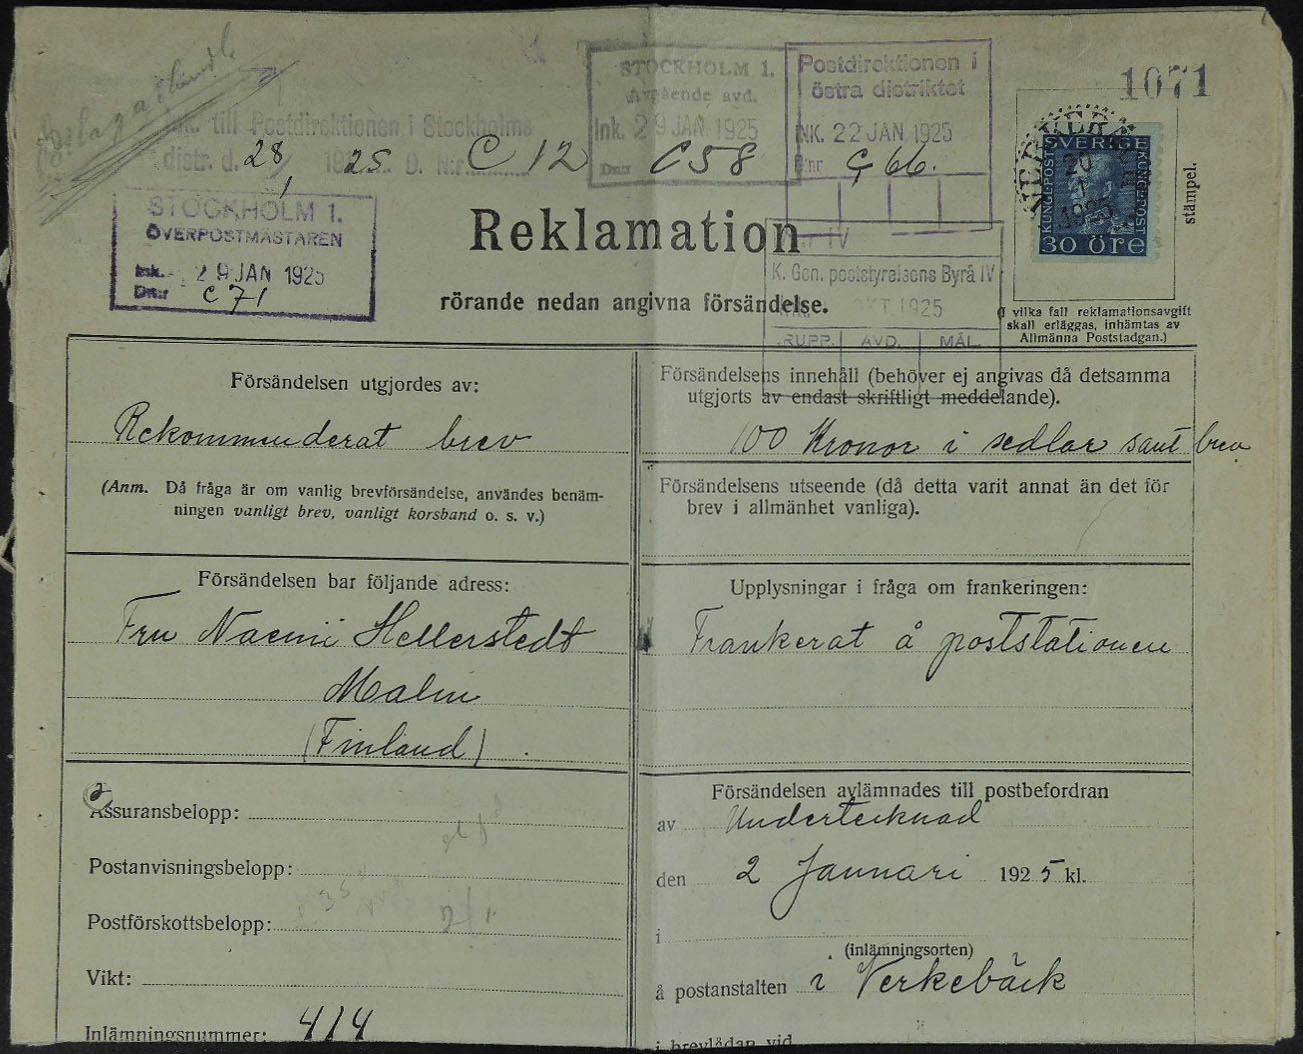 1071
STOCKHOLM 1.
Avgående avd.
Ink. 29 JAN 1925
Dnr C58
Postdirektionen i
östra distriktet
INK. 22 JAN 1925
D:nr G 66.
Ink. till Postdirektionen i Stockholms
distr. d. 28/1 1925. D. N:r C 12
SVERIGE
30 öre
20
1925
stämpel.
STOCKHOLM 1.
ÖVERPOSTMÄSTAREN
Ink. 29 JAN 1925
Dnr C 71
Reklamation
rörande nedan angivna försändelse.
K. Gen. poststyrelsens Byrå IV
OKT 1925
GRUPP. AVD. MÅL.
(I vilka fall reklamationsavgift
skall erläggas, inhämtas av
Allmänna Poststadgan.)
Försändelsen utgjordes av:
Rekommenderat brev
(Anm. Då fråga är om vanlig brevförsändelse, användes benäm-
ningen vanligt brev, vanligt korsband o. s. v.)
Försändelsens innehåll (behöver ej angivas då detsamma
utgjorts av endast skriftligt meddelande).
100 Kronor i sedlar samt brev
Försändelsens utseende (då detta varit annat än det för
brev i allmänhet vanliga).
Försändelsen bar följande adress:
Fru Naemi Hellerstedt
Malm
(Finland)
Upplysningar i fråga om frankeringen:
Frankerat å poststationen
Assuransbelopp:
Postanvisningsbelopp:
Postförskottsbelopp:
Vikt:
Inlämningsnummer: 414
Försändelsen avlämnades till postbefordran
av Undertecknad
den 2 Januari 1925 kl.
i
(inlämningsorten)
å postanstalten i Verkebäck
i brevlådan vid